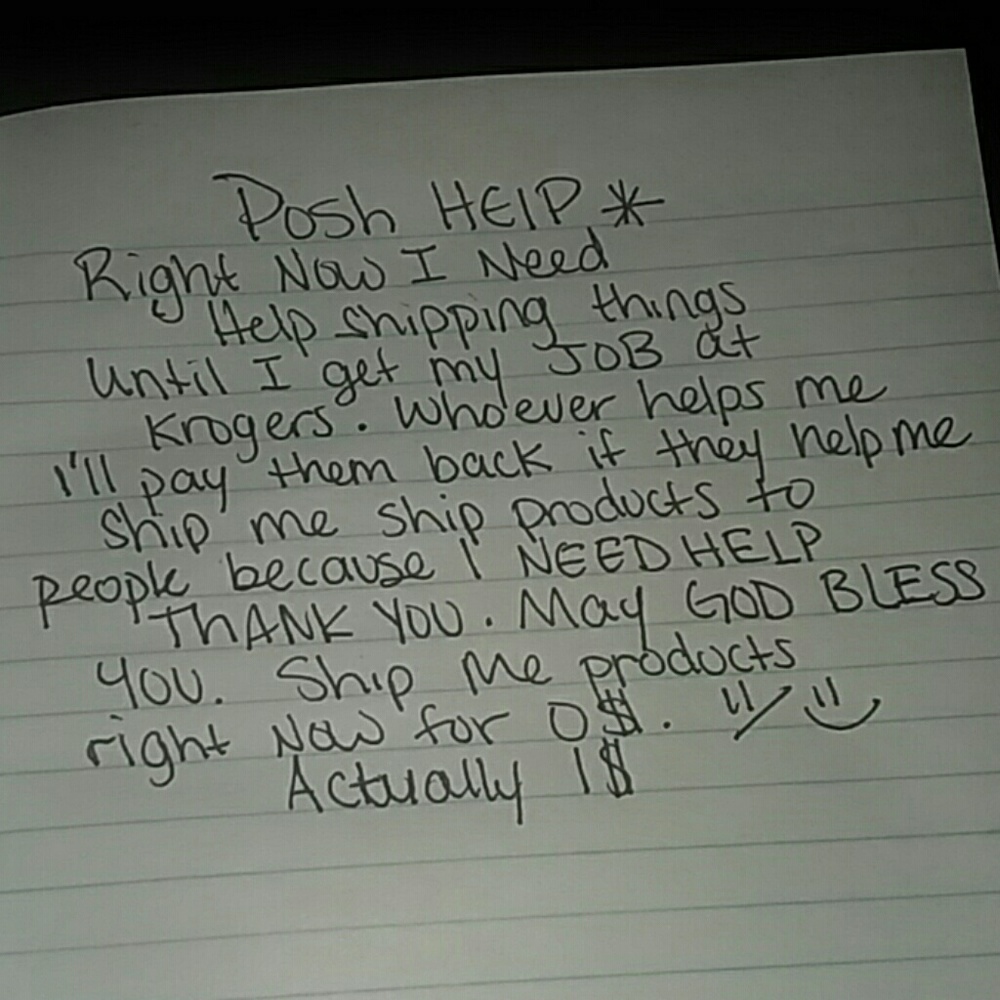 Posh HElP *
Right Now I Need
Help shipping things
until I get my JOB at
Krogers. Whoever helps me
I'll pay them back if they help me
ship me ship products to
people because I NEED HELP
THANK YOU. May GOD BLESS
YOU. Ship Me products
right Now for 0$. "/ ")
Actually 1$